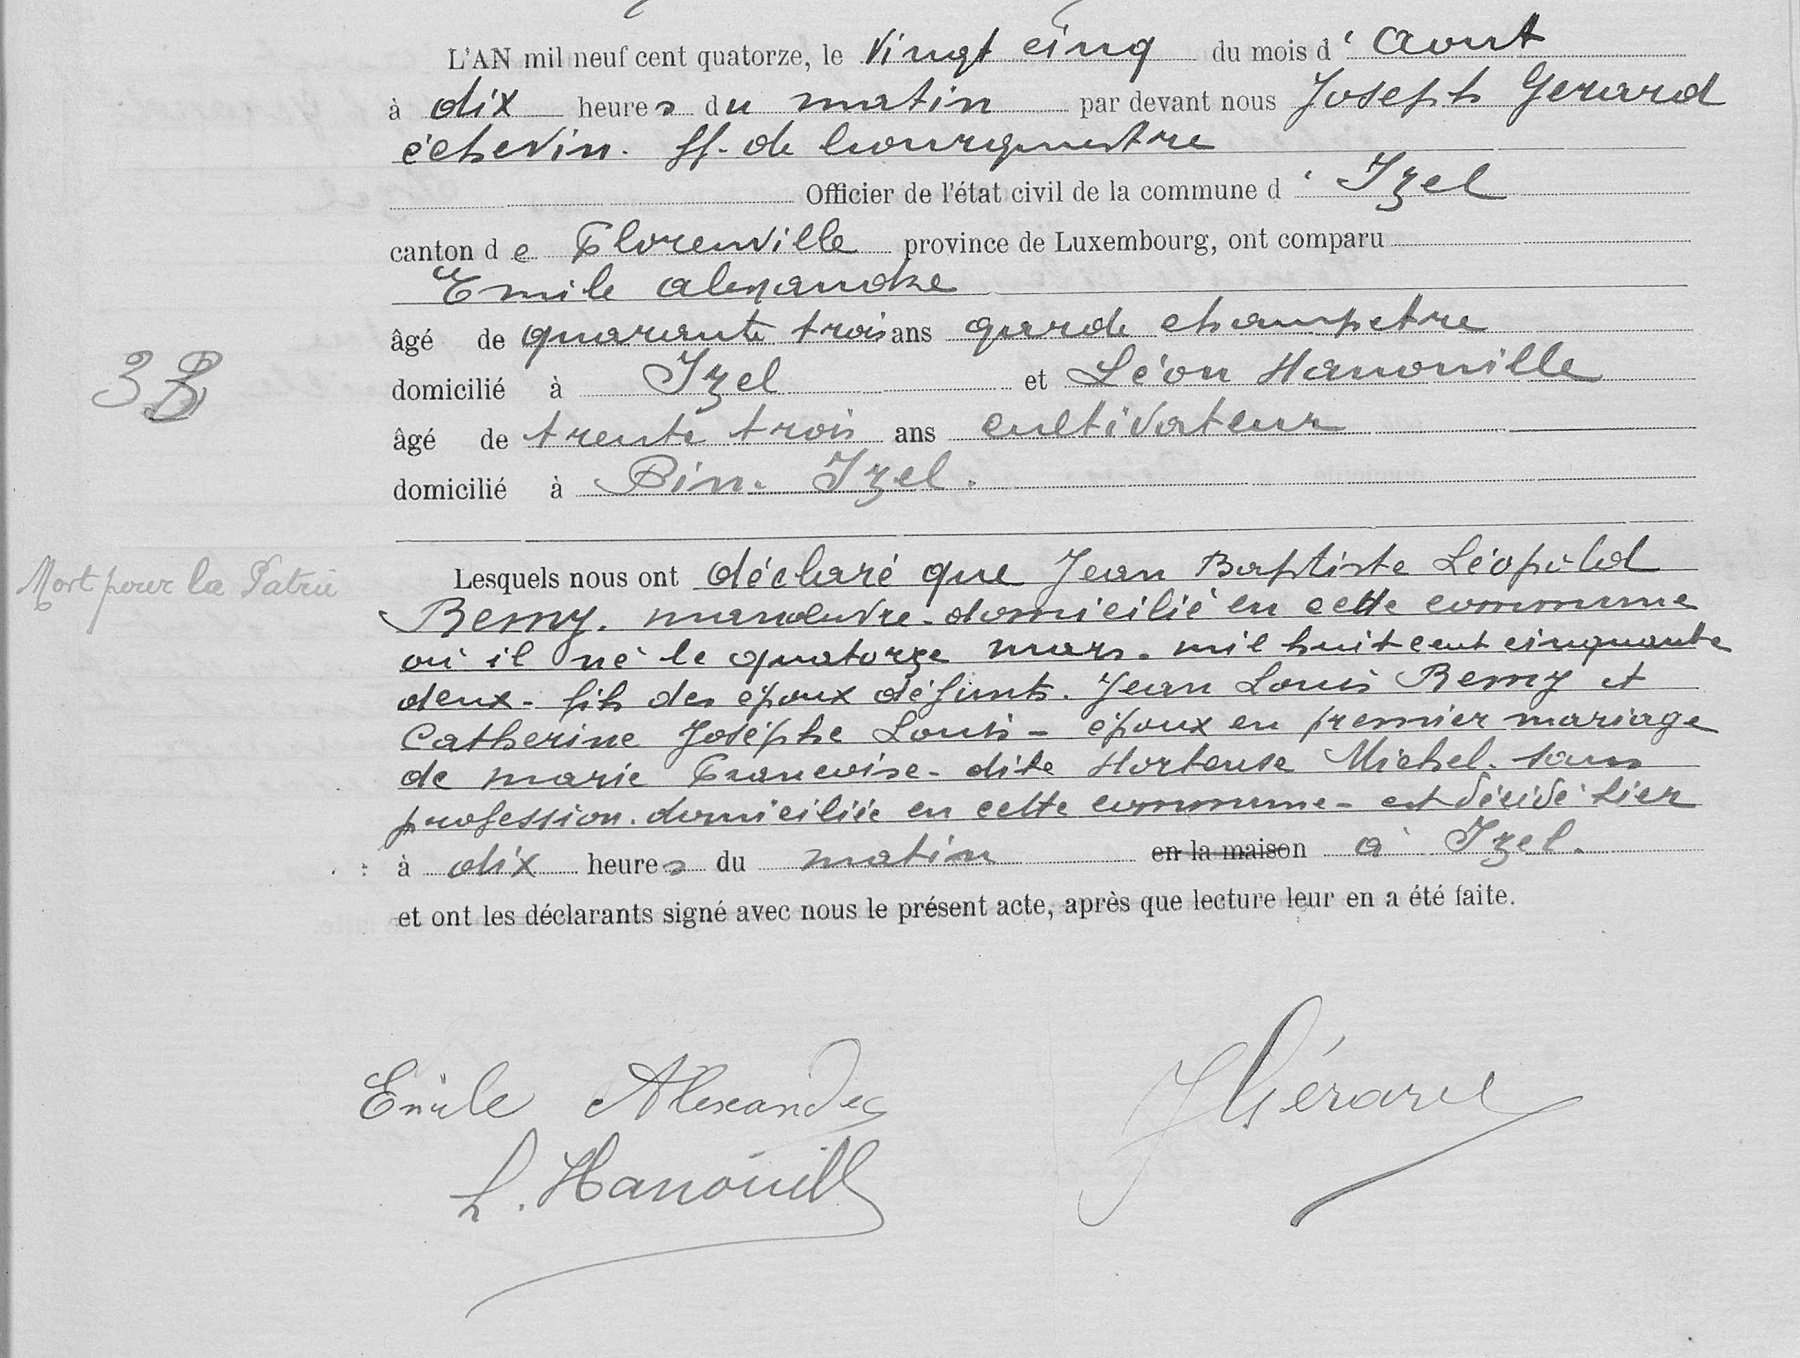 L'AN mil neuf cent quatorze, le vingt cinq du mois d' Aout
à dix heures du matin par devant nous Joseph Gerard
échevin. ff. de bourgmestre
Officier de l'état civil de la commune d' Izel
canton de Florenville province de Luxembourg, ont comparu
Emile Alexandre
âgé de quarante trois ans garde champetre
domicilié à Izel et Léon Hanouille
âgé de trente trois ans cultivateur
domicilié à Pin. Izel.
Mort pour la Patrie
Lesquels nous ont déclaré que Jean Baptiste Léopold
Remy. manoeuvre. domicilié en cette commune
où il né le quatorze mars. mil huit cent cinquante
deux - fils des époux défunts. Jean Louis Remy et
Catherine Joséphe Louis - époux en premier mariage
de marie Francoise - dite Hortense Michel. sans
profession. domiciliée en cette commune - est décédé hier
à dix heures du matin en la maison à Izel.
et ont les déclarants signé avec nous le présent acte, après que lecture leur en a été faite.
Emile Alexandre
J Gérard
L. Hanouille